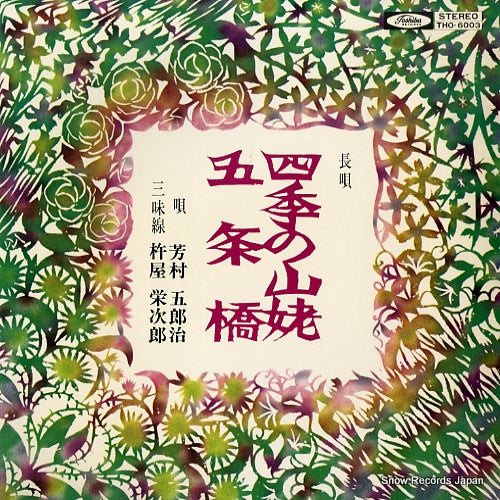 Toshiba
RECORDS
STEREO
THO-6003
長唄
四季の山姥
五条橋
唄 芳村 五郎治
三味線 杵屋 栄次郎
Snow Records Japan